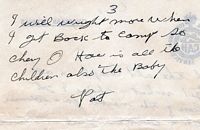 3
I will wright more when
I get Back to Camp so
chery O How is all the
children also the Baby
Pat